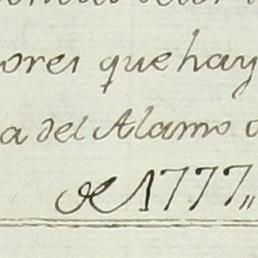 ores que hay
a del Alamo
de 1777,,